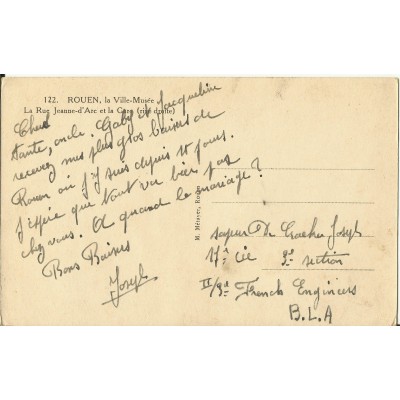 122. ROUEN, la Ville-Musée
La Rue Jeanne-d'Arc et la Gare (rive droite)
Chers
tante, oncle. Gaby et Jacqueline
recevez mes plus gros baisers de
Rouen où j'y suis depuis 11 jours.
j'espère que tout va bien pas
chez vous. A quand le mariage ?
Bons Baisers
Joseph
sapeur De Joseph
17è Cie 3è section
French Engineers
B.L.A